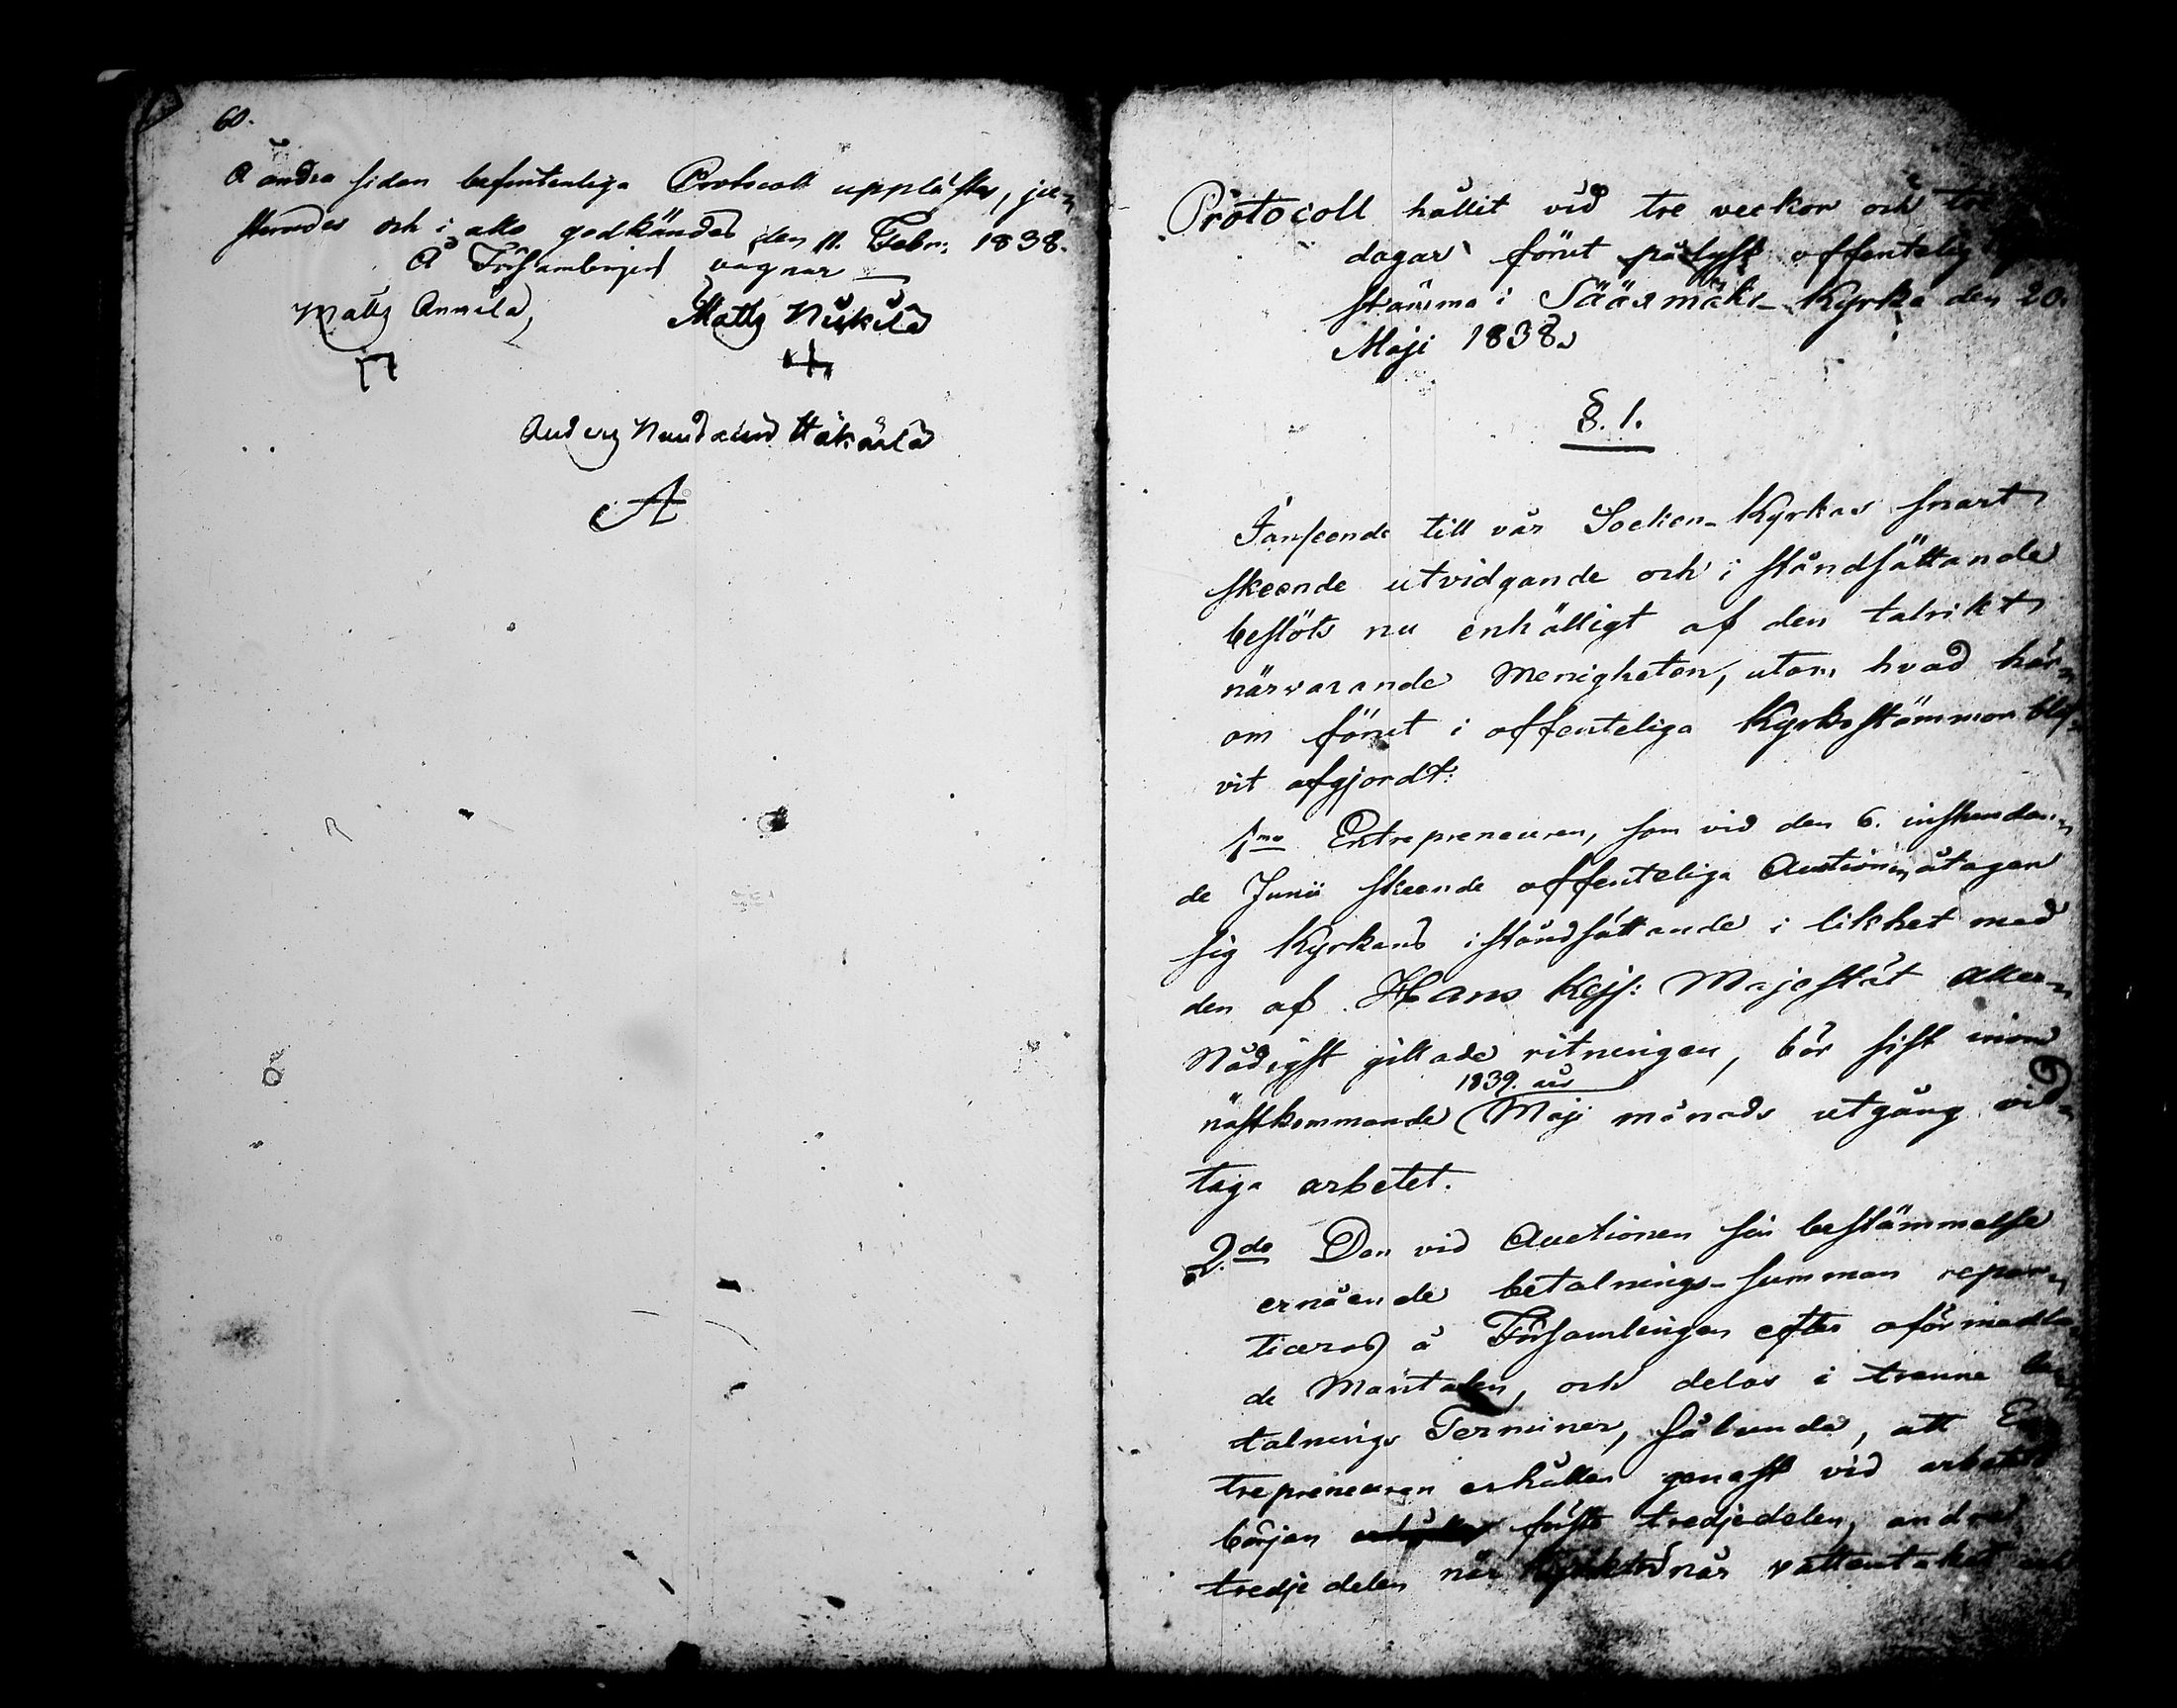 60.
Å andra sidan befinteliga Protocoll upplästes, ju-
sterades och i allo godkändes den 11. Febr: 1838.
Å Församlingens vägnar
Matts Annila, Matts Niskila
Anders Häkärlä
A
Protocoll hållit vid tre veckor och tre
dagar förut pålyst offentelig
stämma i Sääxmäki Kyrka den 20.
Maji 1838.
§. 1.
I anseende till vår Socken-Kyrkas snart
skeende utvidgande och i ståndsättande
beslöts nu enhälligt af den talrikt
närvarande Menigheten, utom hvad här-
om förut i offenteliga Kyrkostämmor blif-
vit afgjordt:
1mo Entrepreneuren, som vid den 6. instundan-
de Junii skeende offenteliga Auction åtager
sig Kyrkans iståndsättande i likhet med
den af Hans Kejs: Majestät Aller-
Nådigst gillade ritningen, bör sist inom
1839. års
nästkommande Maji månads utgång vid-
taga arbetet.
2do Den vid Auctionen sin bestämmelse
ernående betalnings-summan repar-
ticeras å Församlingen efter oförmedla-
de Mantalen, och delas i trenne be-
talnings Terminer, sålunda, att En-
trepreneuren erhåller genast vid arbetets
början första tredjedelen, andra
tredje delen när Kyrkan når vattentaket och